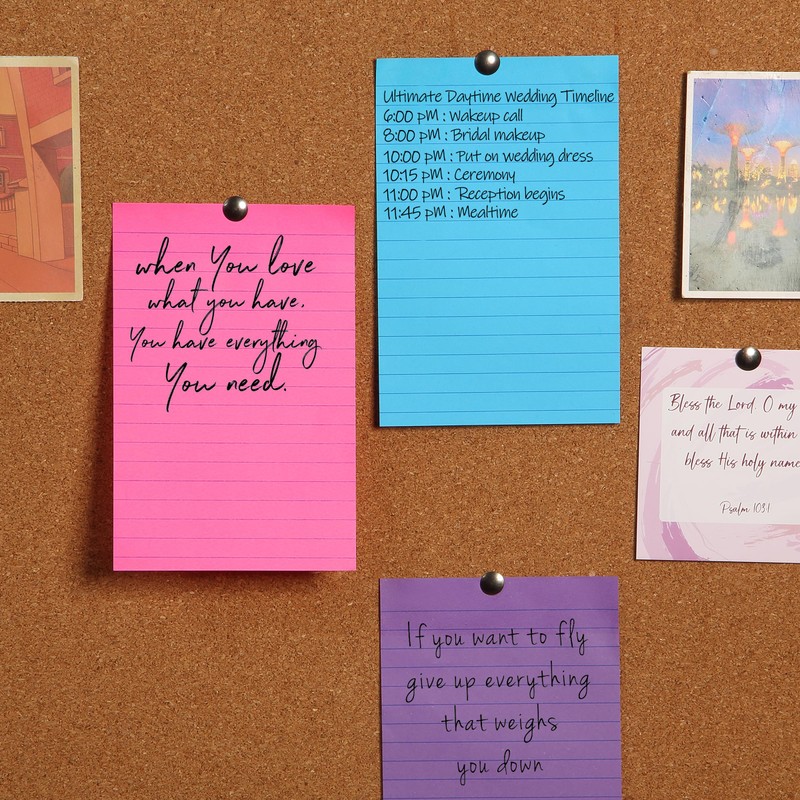 when You love
what you have.
You have everything
You need.
Ultimate Daytime Wedding Timeline
6:00 PM : Wakeup call
8:00 PM : Bridal makeup
10:00 PM : Put on wedding dress
10:15 PM : Ceremony
11:00 PM : Reception begins
11:45 PM : Mealtime
Bless the Lord, O my
and all that is within
bless His holy name
Psalm 103:1
If you want to fly
give up everything
that weighs
you down